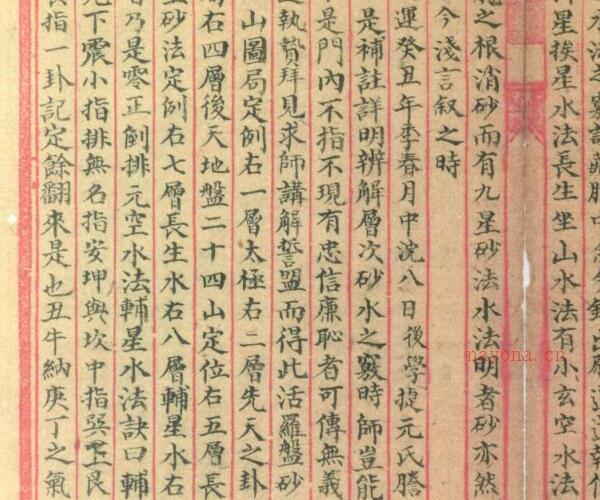 水法之竅訣藏胸中
星挨星水法長生坐山水法有小玄空水法
龍之根消砂而有九星砂法水法明者砂亦然
今淺言叙之時
運癸丑年季春月中浣八日後學捷元氏謄
是補註詳明辨解層次砂水之竅時師豈能
是門內不指不現有忠信廉恥者可傳無義
執贄拜見求師講解誓盟而得此活羅盤砂
山圖局定例右一層太極右二層先天之卦
右四層後天地盤二十四山定位右五層長
砂法定例右七層長生水右八層輔星水右
乃是零正倒排元空水法輔星水法訣曰輔
下震小指排無名指安坤與坎中指巽上艮
指一卦記定餘翻來是也丑牛納庚丁之氣
nayona.cn